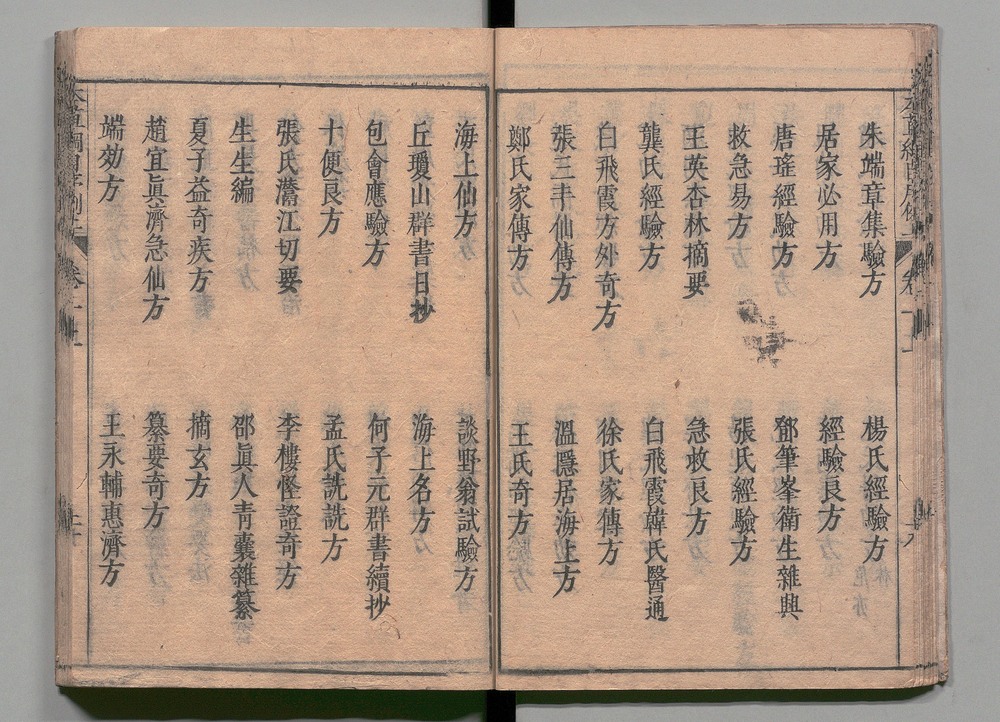 朱端章集驗方
楊氏經驗方
居家必用方
經驗良方
唐瑤經驗方
鄧筆峯衛生雜興
救急易方
張氏經驗方
王英杏林摘要
急救良方
龔氏經驗方
白飛霞韓氏醫通
白飛霞方外奇方
徐氏家傳方
張三丰仙傳方
溫隱居海上方
鄭氏家傳方
王氏奇方
海上仙方
談野翁試驗方
丘瓊山群書日抄
海上名方
包會應驗方
何子元群書續抄
十便良方
孟氏詵詵方
張氏灊江切要
李樓怪證奇方
生生編
邵眞人青囊雜纂
夏子益奇疾方
摘玄方
趙宜眞濟急仙方
纂要奇方
端効方
王永輔惠濟方